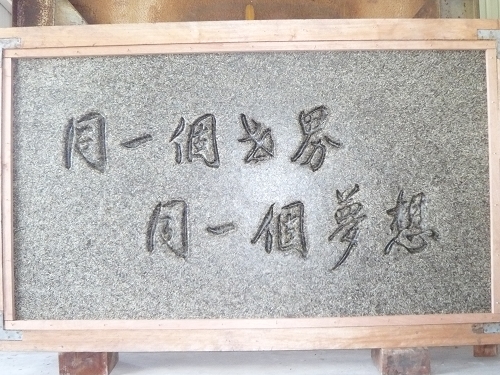 同一個世界
同一個夢想